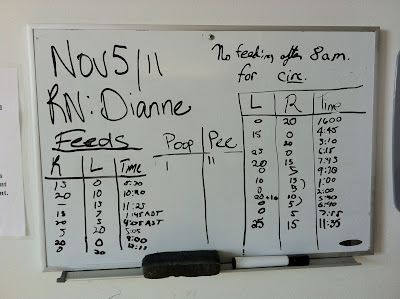 Nov 5/11
RN: Dianne
No feeding after 8am.
for circ.
Feeds
R L Time
15 0 8:30
20 10 10:30
– 15 11:25
15 7 1:45 AST
20 5 4:05 AST
5 20 5:05
20 0 9:00
0 20
Poop Pee
1 11
L R Time
0 20 1600
15 0 4:45
0 20 5:10
25 0 6:15
20 15 7:45
0 5 9:30
10 15 1:00
0 5 2:00
20+10 0 5:40
0 5 6:40
0 5 7:55
25 15 11:35